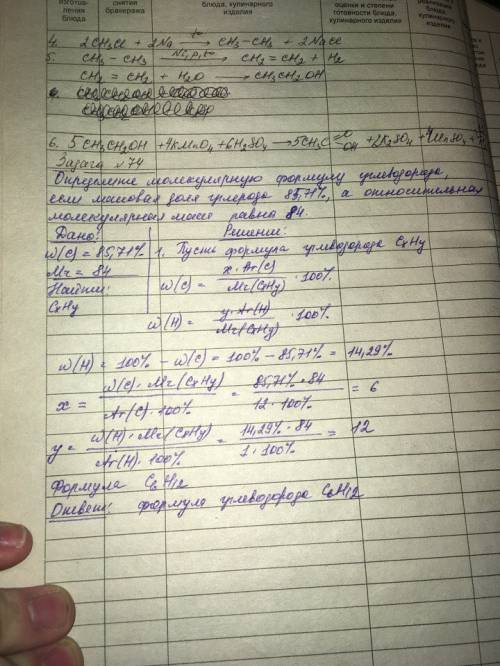 изготов-
ления
снятия
бракеража
блюда, кулинарного
изделия
оценки и степени
готовности блюда,
кулинарного изделия
блюда
кулинарного
4. 2CH3Cl + 2Na →t° CH3-CH3 + 2NaCl
5. CH3 - CH3 →Ni,p,t° CH2 = CH2 + H2
CH2 = CH2 + H2O → CH3CH2OH
6. 5CH3CH2OH + 4KMnO4 + 6H2SO4 → 5CH3C=O OH + 2K2SO4 + 4MnSO4 +
Задача №74
Определите молекулярную формулу углеводорода,
если массовая доля углерода 85,71%, а относительная
молекулярная масса равна 84.
Дано: Решение:
ω(C) = 85,71% 1. Пусть формула углеводорода CxHy
Mr = 84
Найти: ω(C) = x·Ar(C) / Mr(CxHy) · 100%
CxHy
ω(H) = y·Ar(H) / Mr(CxHy) · 100%
ω(H) = 100% - ω(C) = 100% - 85,71% = 14,29%
x = ω(C)·Mr(CxHy) / Ar(C)·100% = 85,71%·84 / 12·100% = 6
y = ω(H)·Mr(CxHy) / Ar(H)·100% = 14,29%·84 / 1·100% = 12
Формула C6H12
Ответ: формула углеводорода C6H12